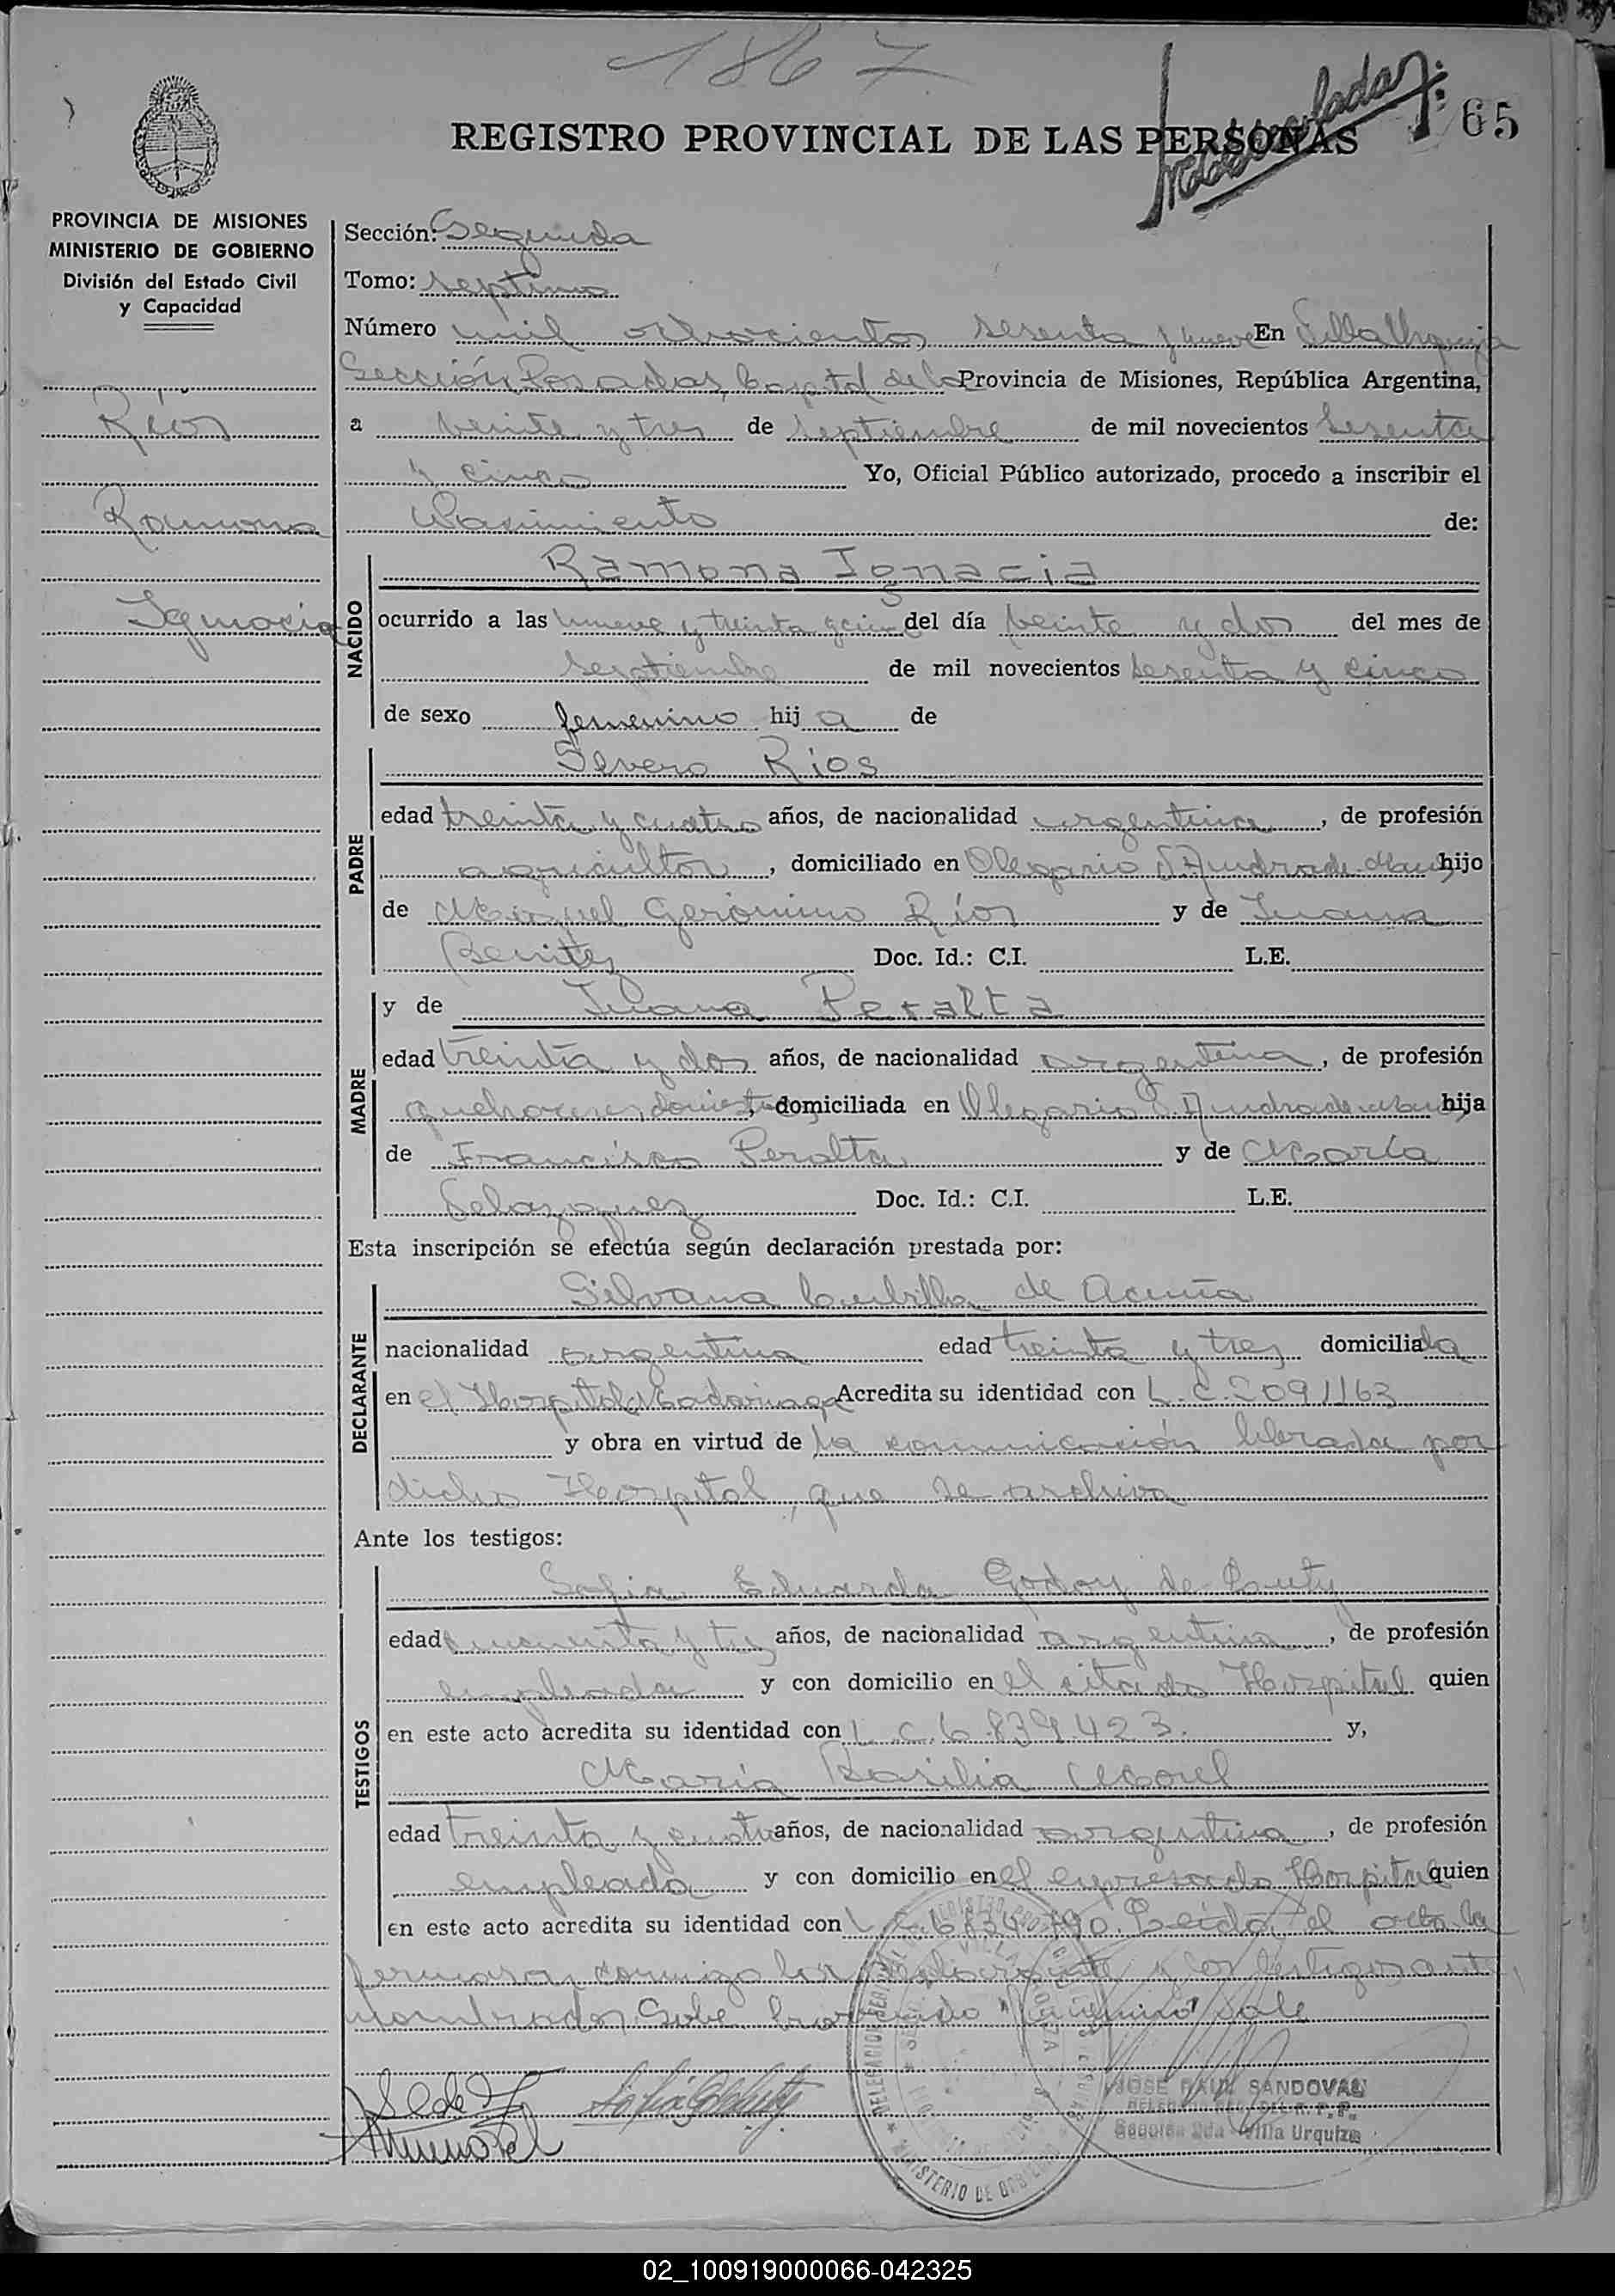 1867
65
REGISTRO PROVINCIAL DE LAS PERSONAS
PROVINCIA DE MISIONES
MINISTERIO DE GOBIERNO
División del Estado Civil
y Capacidad
Ríos
Ramona
Ignacia
Sección: Segunda
Tomo: septimo
Número mil ochocientos sesenta y nueve En Villa Urquiza
Sección Posadas, Capital de la Provincia de Misiones, República Argentina,
a veinte y tres de septiembre de mil novecientos sesenta
y cinco Yo, Oficial Público autorizado, procedo a inscribir el
Nacimiento de:
NACIDO
Ramona Ignacia
ocurrido a las nueve y treinta y cinco del día veinte y dos del mes de
septiembre de mil novecientos sesenta y cinco
de sexo femenino hija de
PADRE
Severo Ríos
edad treinta y cuatro años, de nacionalidad argentina, de profesión
agricultor, domiciliado en Olegario V. Andrade hijo
de Miguel Gerónimo Ríos y de Juana
Benitez Doc. Id.: C.I. L.E.
MADRE
y de Juana Peralta
edad treinta y dos años, de nacionalidad argentina, de profesión
quehaceres domest, domiciliada en Olegario V. Andrade hija
de Francisco Peralta y de María
Velazquez Doc. Id.: C.I. L.E.
Esta inscripción se efectúa según declaración prestada por:
DECLARANTE
Silvana Cubilla de Acuña
nacionalidad argentina edad treinta y tres domiciliada
en el Hospital Madariaga Acredita su identidad con L.C. 2091163
y obra en virtud de la comunicación librada por
dicho Hospital, que se archiva
Ante los testigos:
TESTIGOS
Sofia Eduarda Godoy de
edad cincuenta y tres años, de nacionalidad argentina, de profesión
empleada y con domicilio en el citado Hospital quien
en este acto acredita su identidad con L.C. 6.839.423. y,
María Basilia Morel
edad treinta y cuatro años, de nacionalidad argentina, de profesión
empleada y con domicilio en el expresado Hospital quien
en este acto acredita su identidad con L.C. Leida el acta la
firmaron conmigo la declarante y los testigos ante
nombrados. Sobe borrado "femenino" vale
JOSE RAUL SANDOVAL
Sección 2da Villa Urquiza
MINISTERIO DE GOBIERNO
02_100919000066-042325